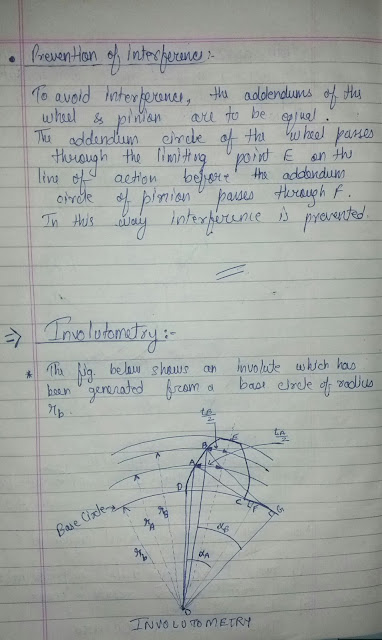 Prevention of Interference:-
To avoid interference, the addendums of the
wheel & pinion are to be equal.
The addendum circle of the wheel passes
through the limiting point E on the
line of action before the addendum
circle of pinion passes through F.
In this way interference is prevented.
=> Involutometry:-
* The fig. below shows an involute which has
been generated from a base circle of radius
rb.
tB/2
E
tA/2
B
A
D
C
F
G
Base Circle
rA
rB
rb
αB
αA
O
INVOLUTOMETRY